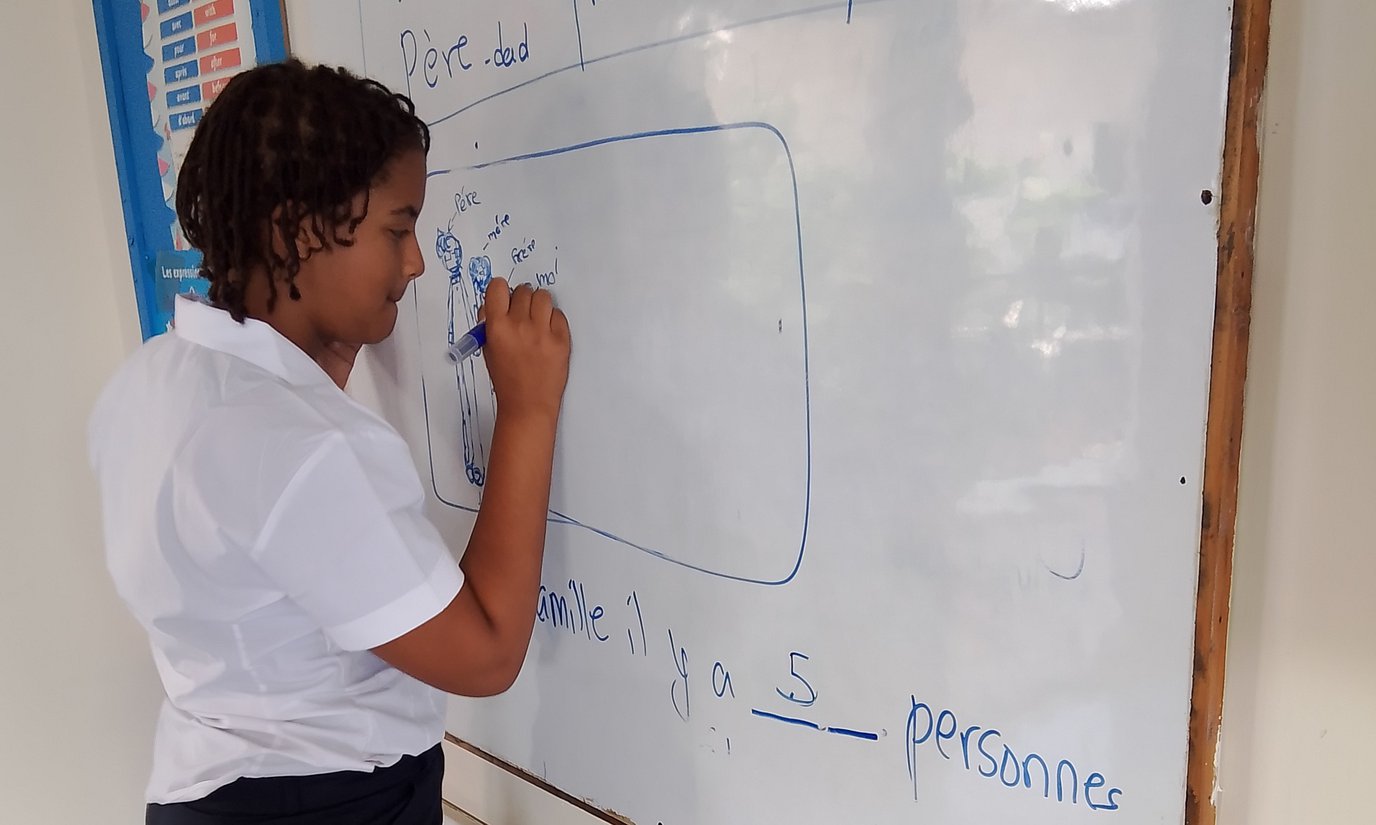 avec with
pour for
après after
avant
d'abord
Père - dad
Père
mère
frère
moi
Les expressio
amille il y a 5 personnes